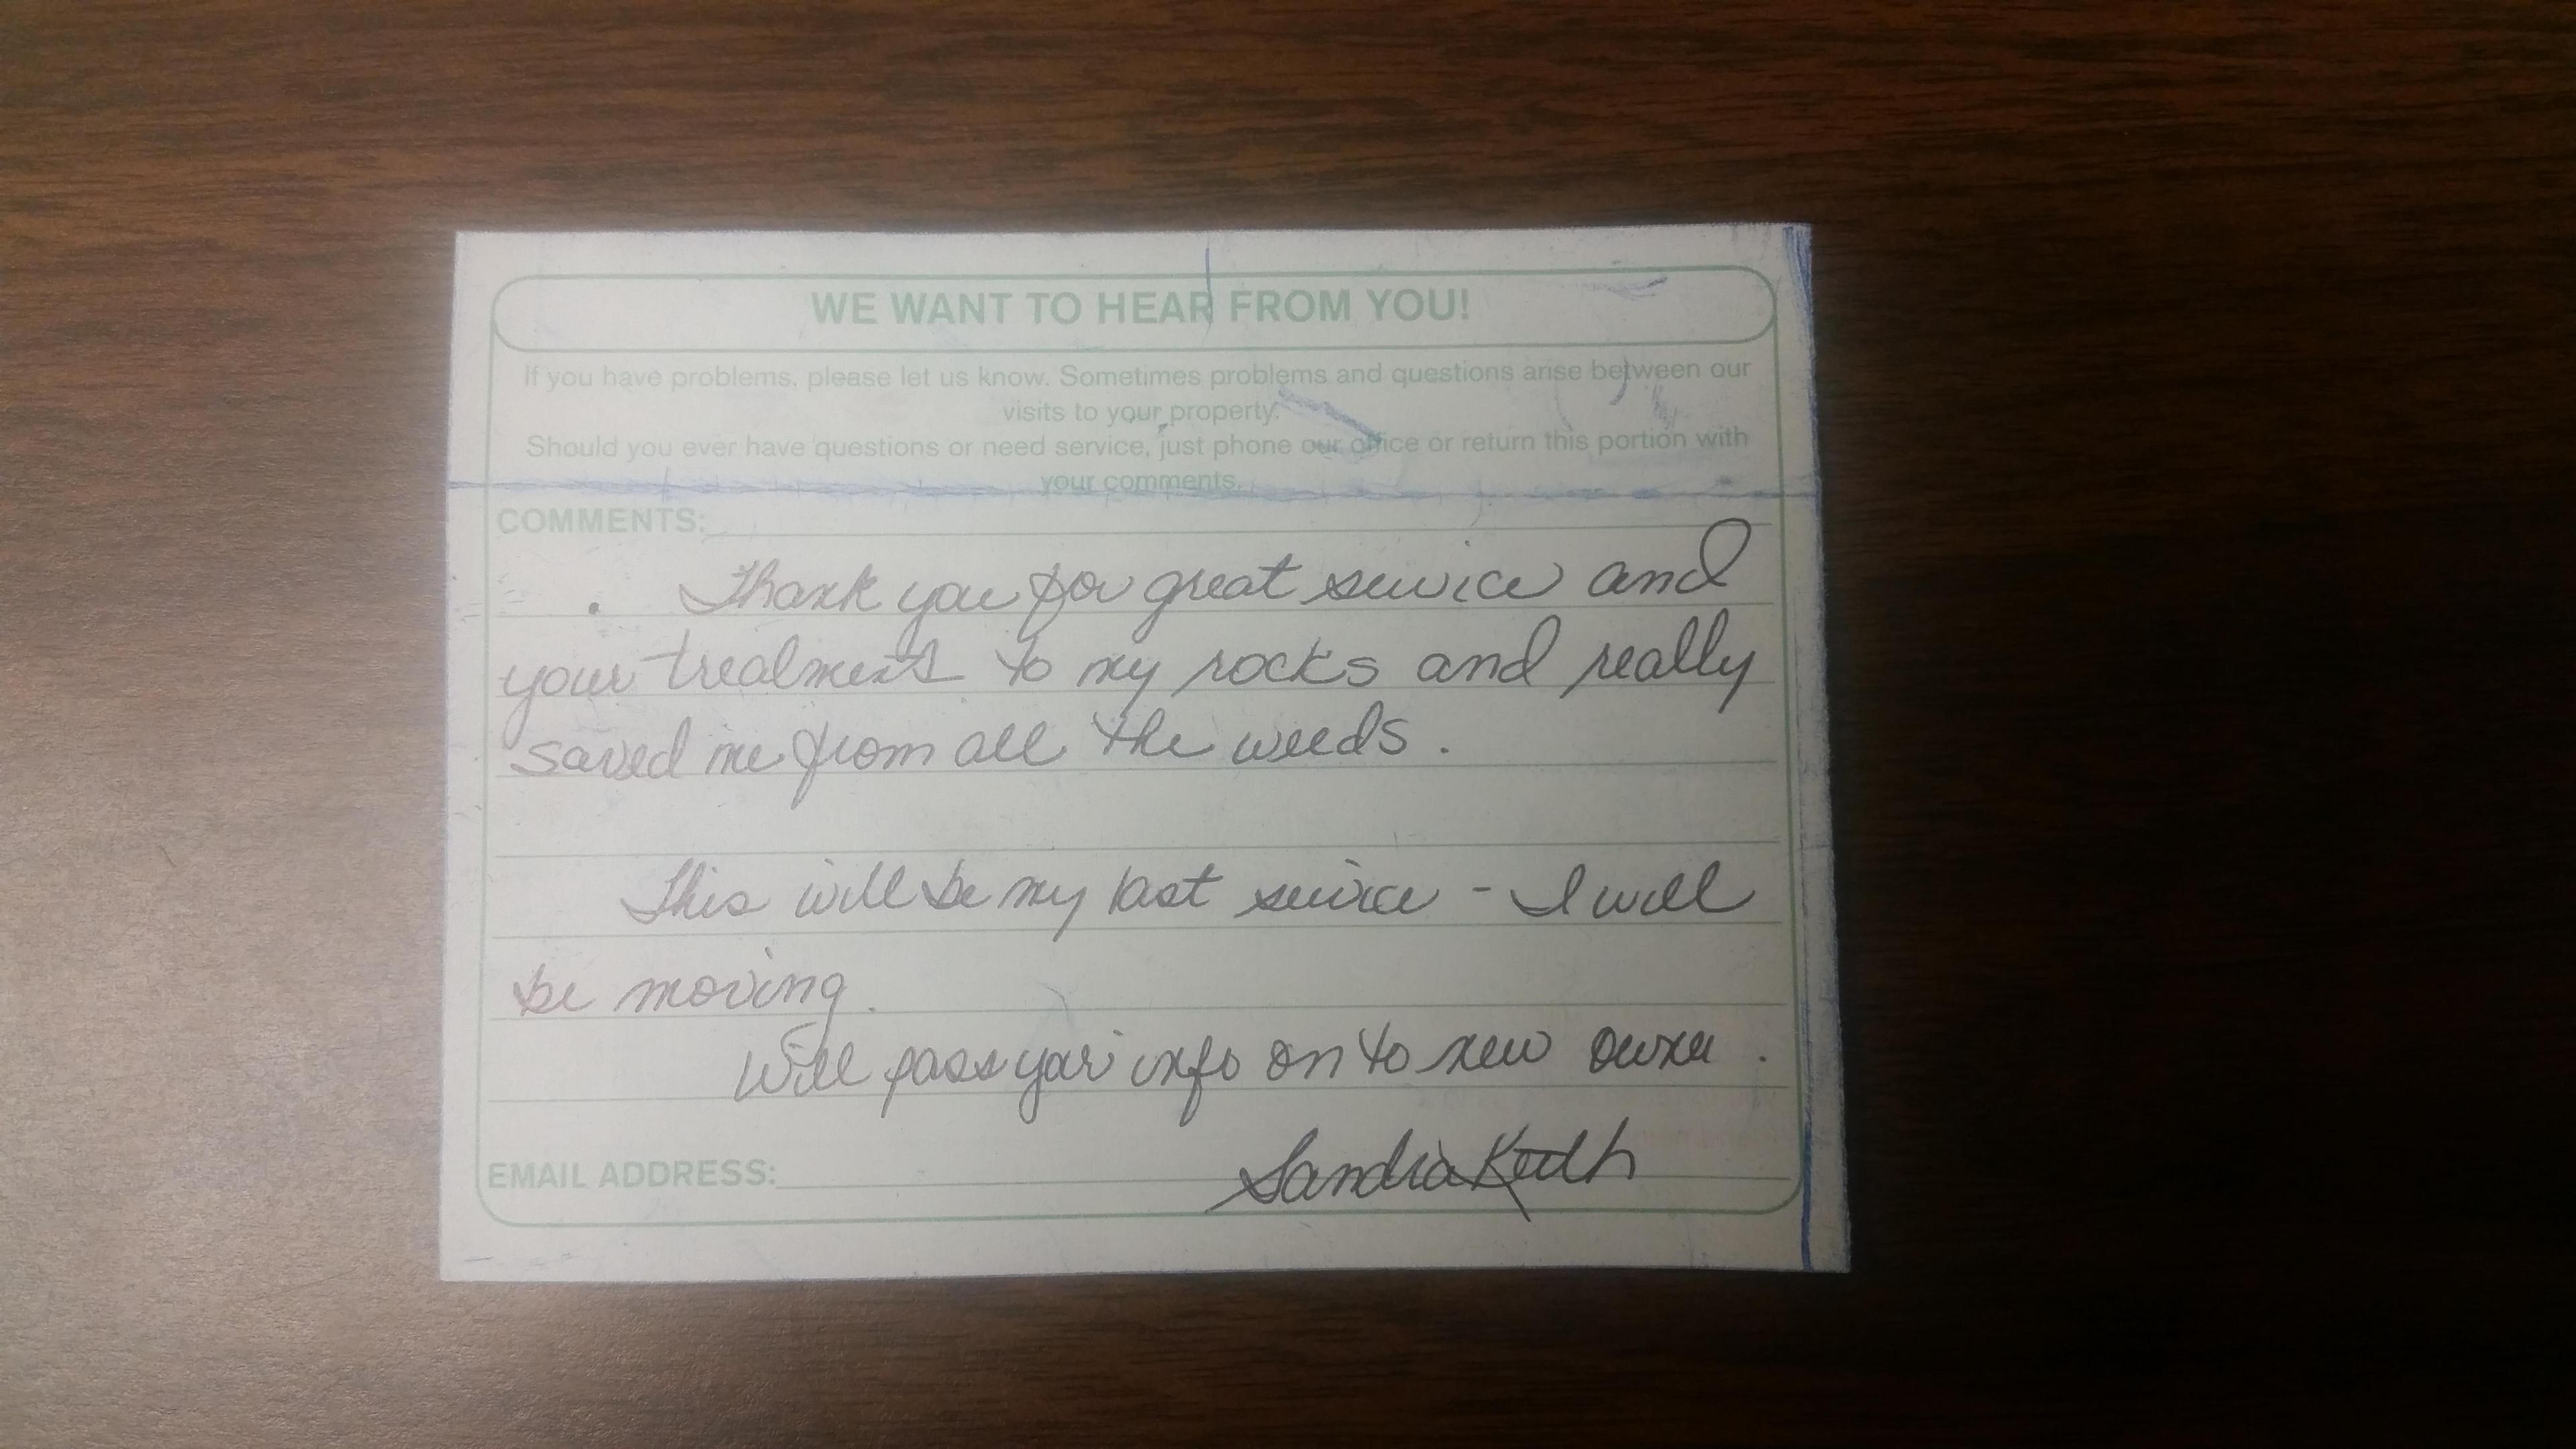 WE WANT TO HEAR FROM YOU!
If you have problems, please let us know. Sometimes problems and questions arise between our
visits to your property.
Should you ever have questions or need service, just phone our office or return this portion with
your comments.
COMMENTS:
Thank you for great service and
your treatments to my rocks and really
saved me from all the weeds.
This will be my last service - I will
be moving.
Will pass your info on to new owner.
EMAIL ADDRESS:
Sandra Keith